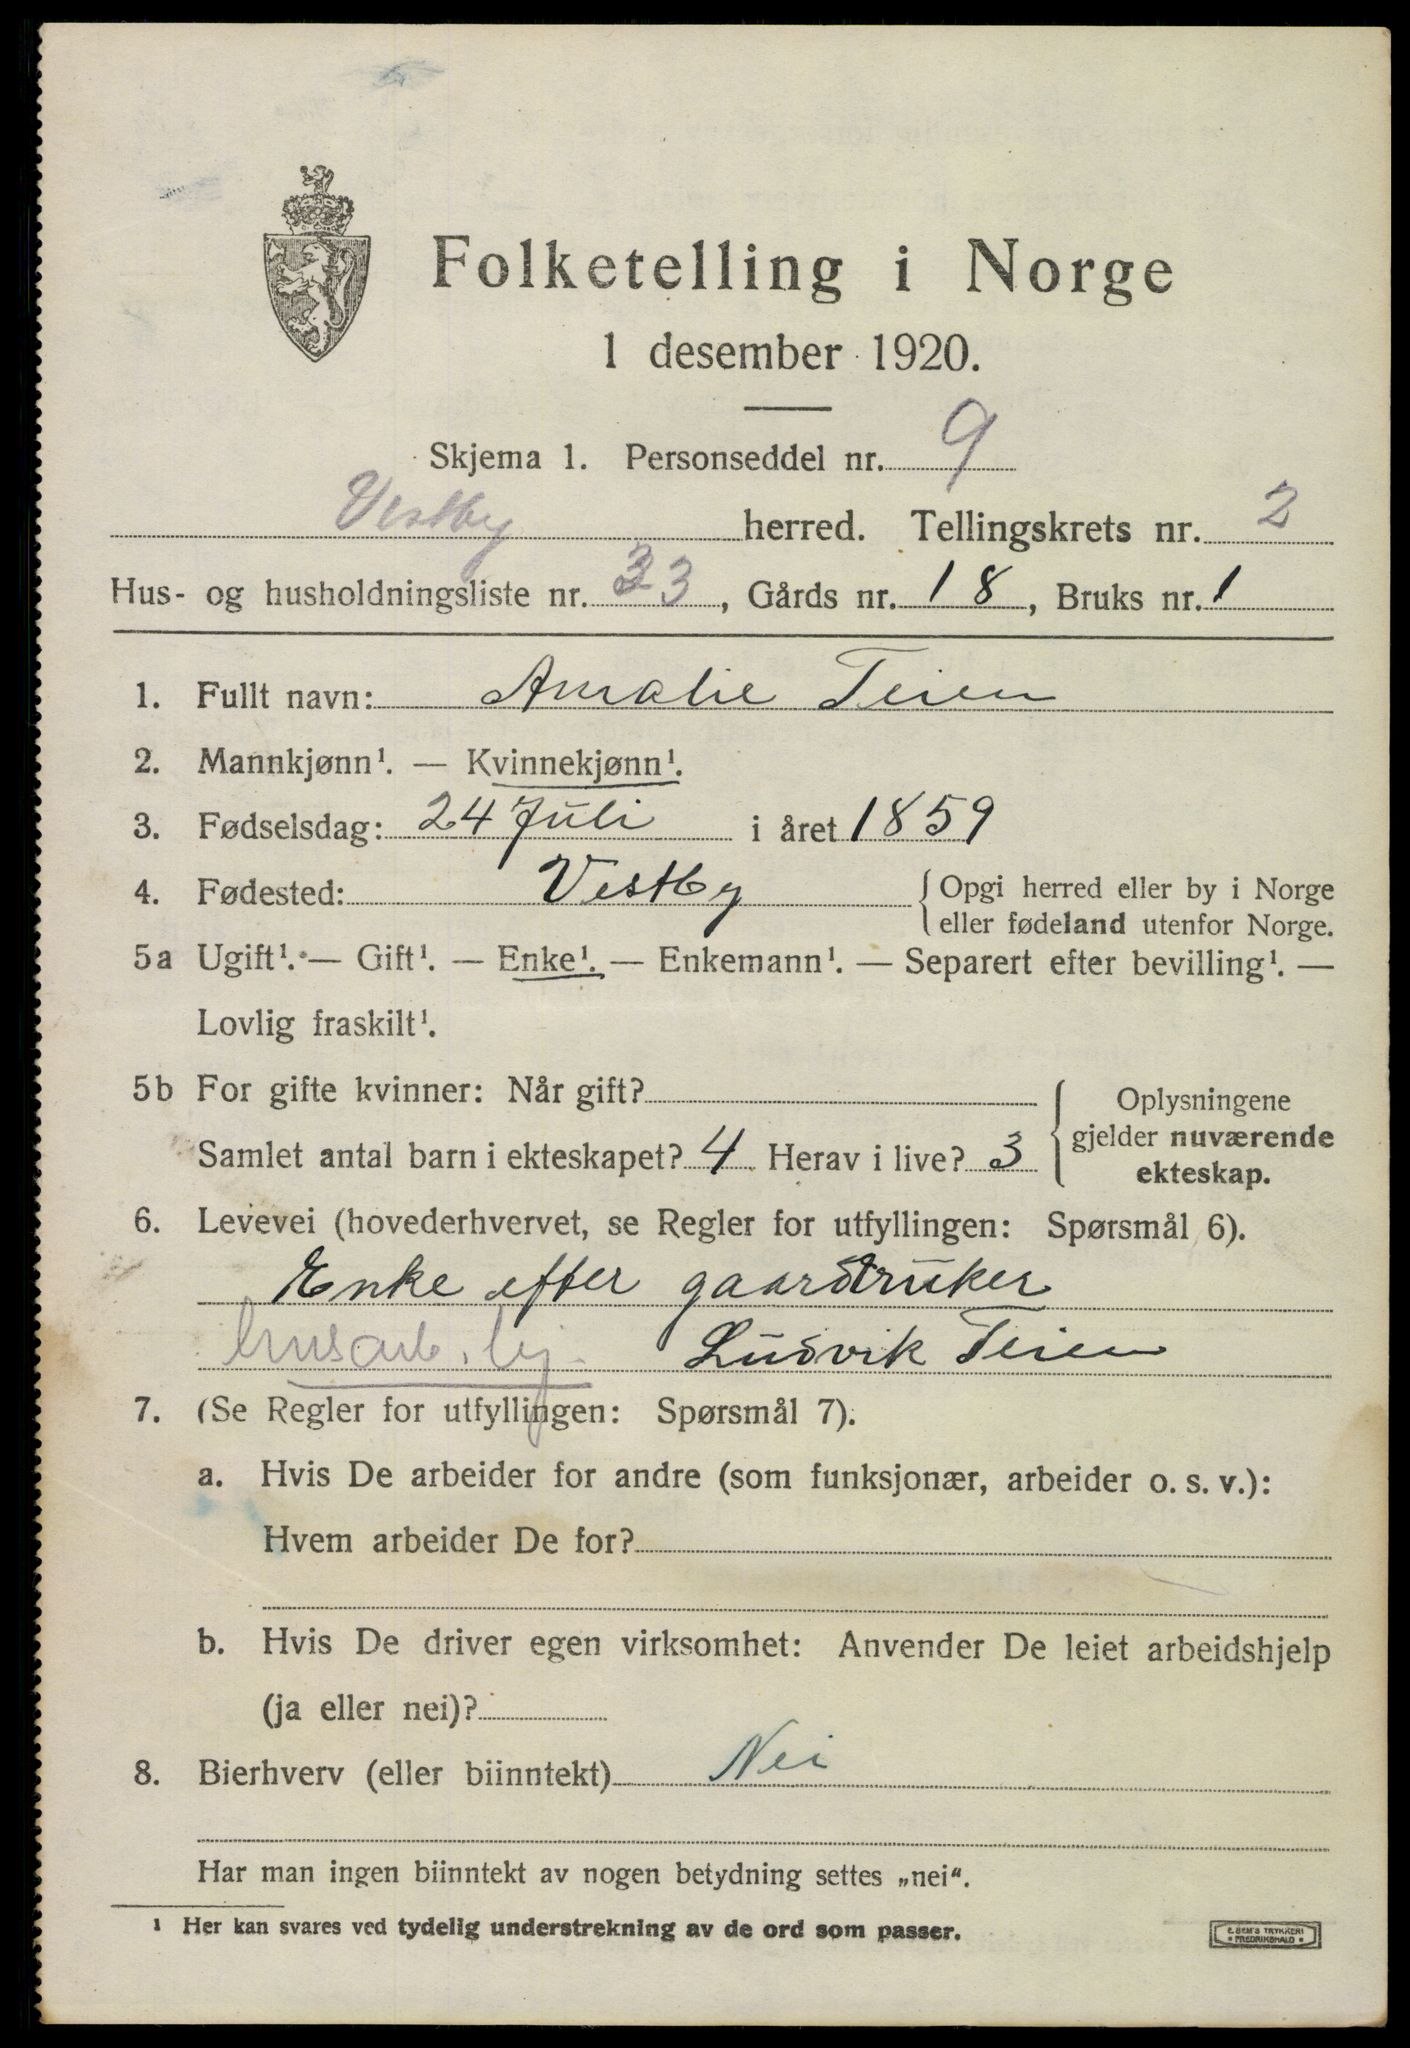 Folketelling i Norge
1 desember 1920.
Skjema 1. Personseddel nr. 9
Vestby herred. Tellingskrets nr. 2
Hus- og husholdningsliste nr. 33, Gårds nr. 18, Bruks nr. 1
1. Fullt navn: Amalie Teien
2. Mannkjønn¹. — Kvinnekjønn¹.
3. Fødselsdag: 24 Juli i året 1859
4. Fødested: Vestby { Opgi herred eller by i Norge
eller fødeland utenfor Norge.
5a Ugift¹. — Gift¹. — Enke¹. — Enkemann¹. — Separert efter bevilling¹. —
Lovlig fraskilt¹.
5b For gifte kvinner: Når gift?
Samlet antal barn i ekteskapet? 4 Herav i live? 3
{ Oplysningene
gjelder nuværende
ekteskap.
6. Levevei (hovederhvervet, se Regler for utfyllingen: Spørsmål 6).
Enke efter gaardbruker
husarb. Ludvik Teien
7. (Se Regler for utfyllingen: Spørsmål 7).
a. Hvis De arbeider for andre (som funksjonær, arbeider o. s. v.):
Hvem arbeider De for?
b. Hvis De driver egen virksomhet: Anvender De leiet arbeidshjelp
(ja eller nei)?
8. Bierhverv (eller biinntekt) Nei
Har man ingen biinntekt av nogen betydning settes „nei“.
¹ Her kan svares ved tydelig understrekning av de ord som passer.
E. SEM'S TRYKKERI
• FREDRIKSHALD •